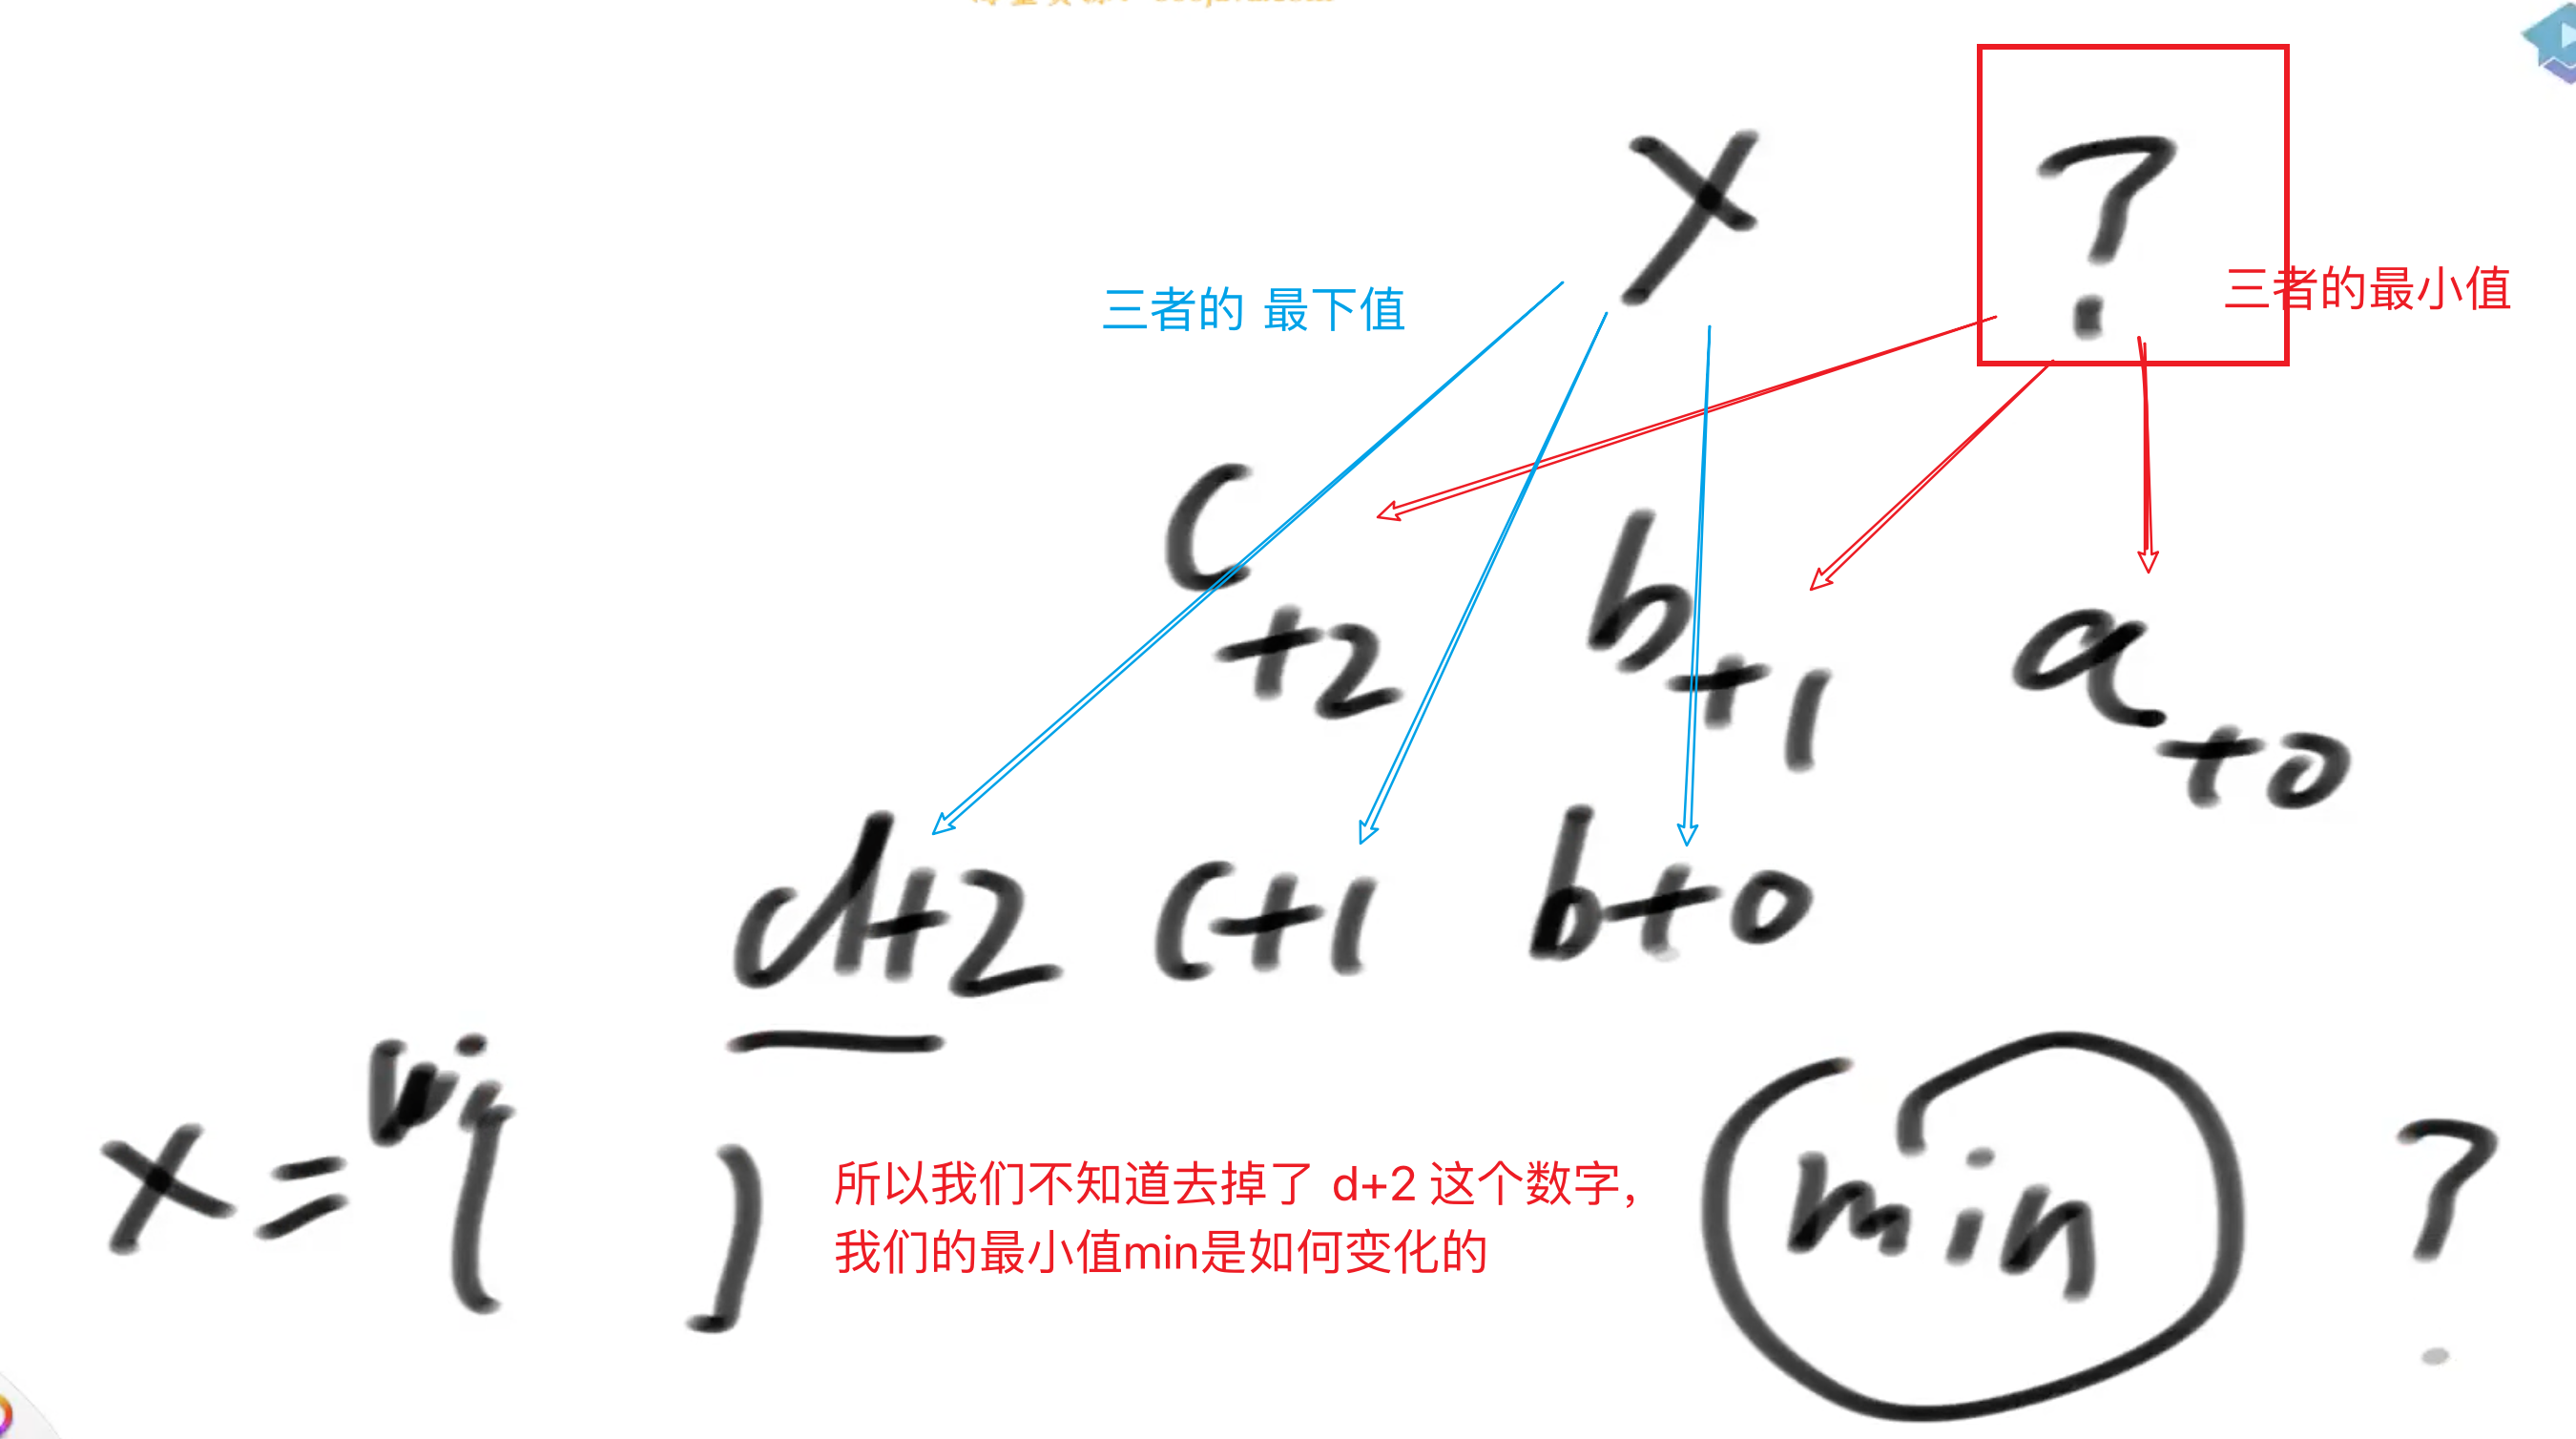 X ?
三者的 最下值
三者的最小值
c+2 b+1 a+0
d+2 c+1 b+0
x=
min ?
所以我们不知道去掉了 d+2 这个数字，
我们的最小值min是如何变化的